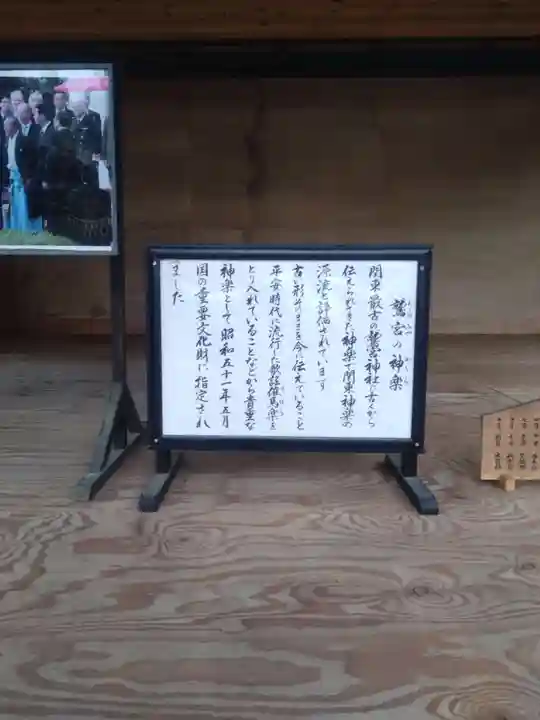 鷲宮の神楽
関東最古の鷲宮神社に古くから
伝えられてきた神楽で関東神楽の
源流と評価されています
古い形そのままを今に伝えていること
平安時代に流行した歌謡催馬楽を
とり入れていることなどから貴重な
神楽として昭和五十一年五月
国の重要文化財に指定され
ました